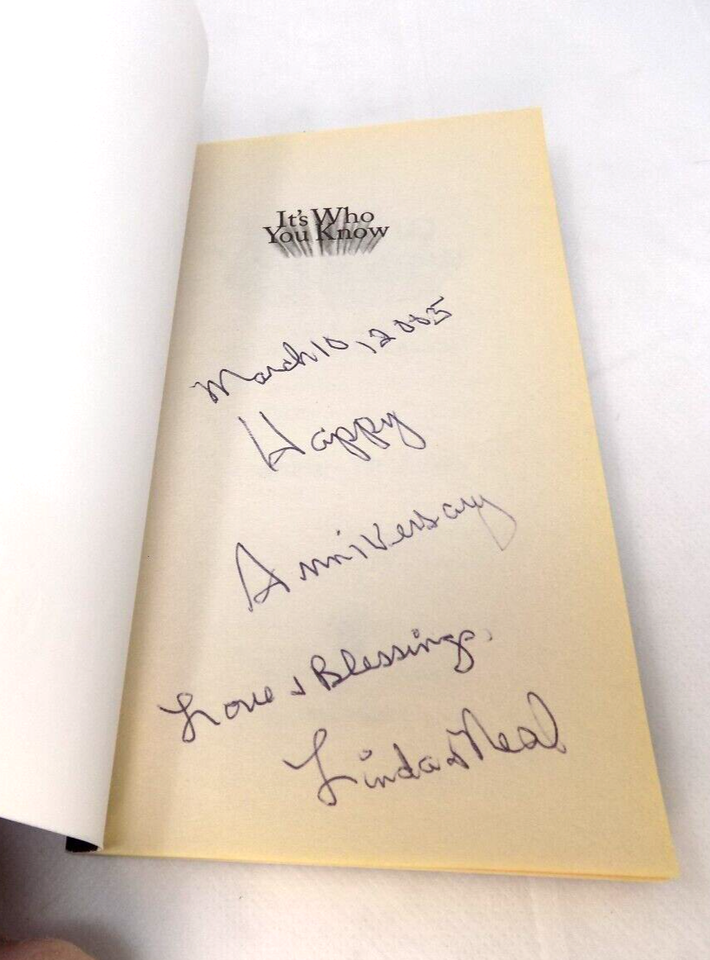 It's Who
You Know
March 10, 2005
Happy
Anniversary
Love & Blessings,
Linda & Neal